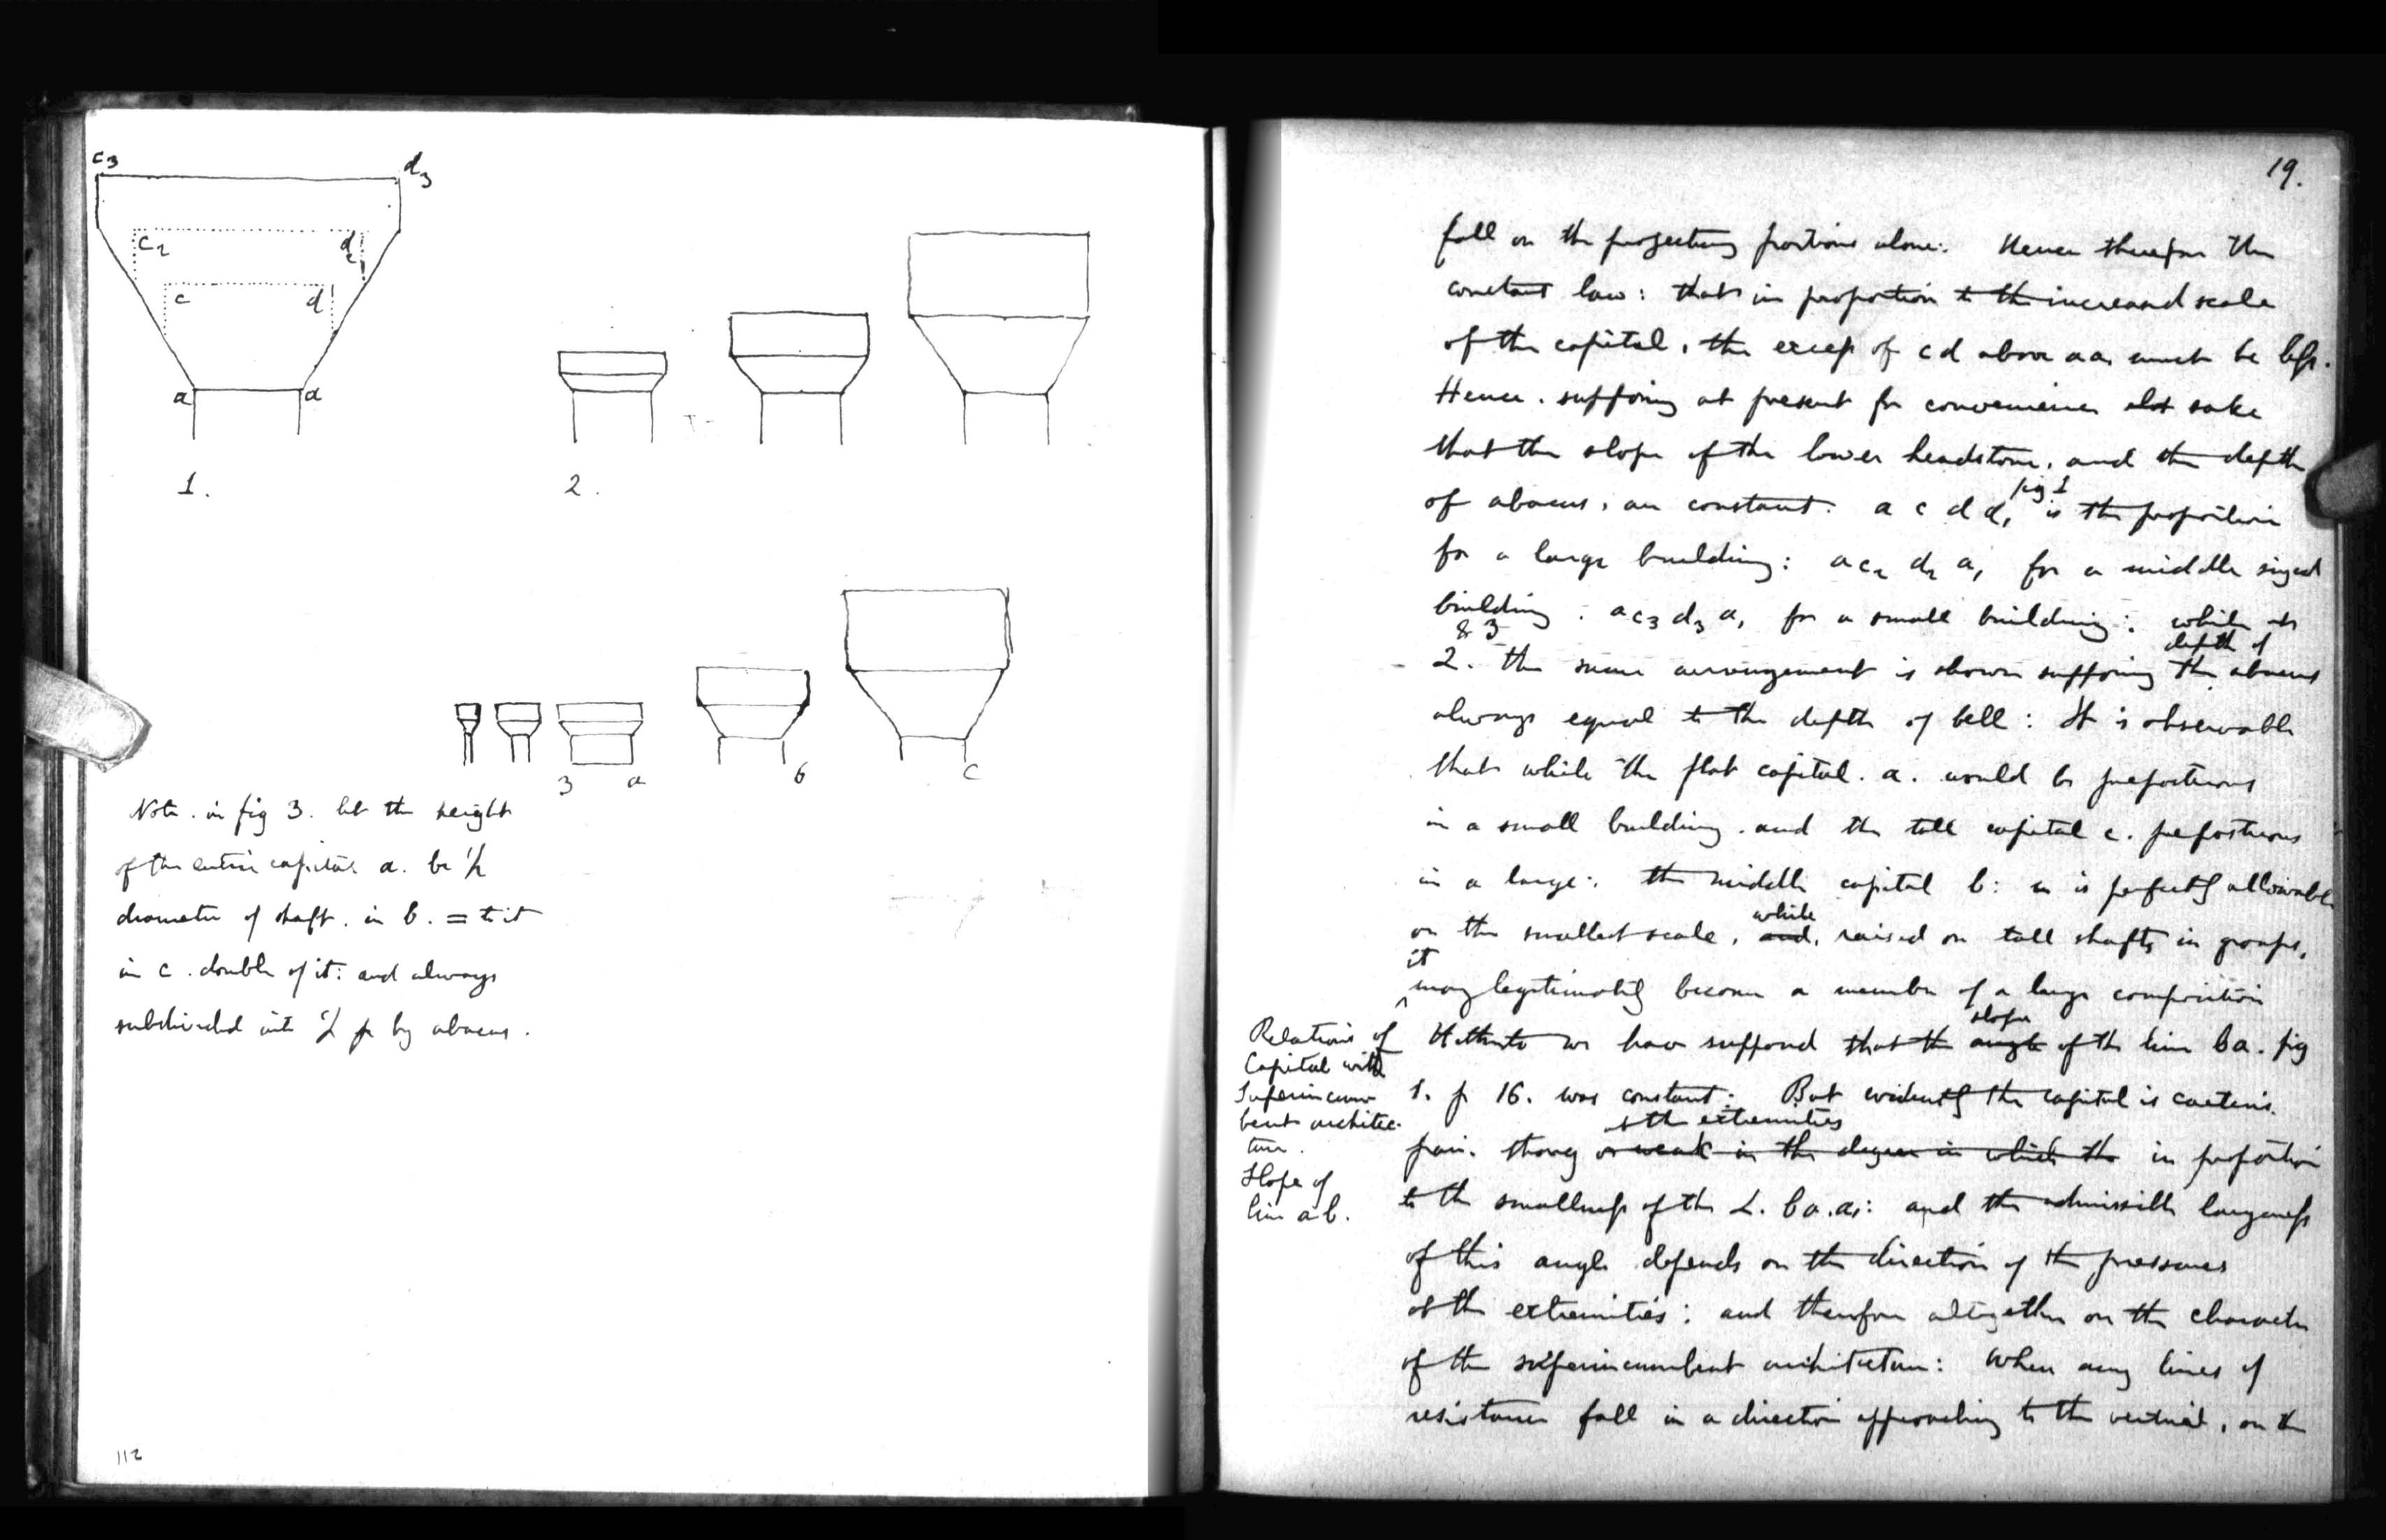 c3 d3
c2 d2
c d
a a
1. 2.
3 a b c
Note. in fig 3. let the height
of the entire capital a. be 1/2
diameter of shaft. in b. = to it
in c. double of it: and always
subdivided into 1/2 by abacus.
112
19.
fall on the projecting portions alone: Hence therefore the
constant law: that in proportion to the increased scale
of the capital, the excess of c d above aa, must be less.
Hence. supposing at present for convenience sake
that the slope of the lower headstone, and the depth
of abacus, are constant. a c d a, fig 1 is the proportion
for a large building: a c2 d2 a, for a middle sized
building. a c3 d3 a, for a small building: while in
2. & 3 the same arrangement is shown supposing the depth of abacus
always equal to the depth of bell: It is observable
that while the flat capital. a. would be preposterous
in a small building. and the tall capital c. preposterous
in a large: the middle capital b: is perfectly allowable
on the smallest scale, and, while raised on tall shafts in groups,
it may legitimately become a member of a large composition
Relations of
Capital with
Superincum
bent architec-
ture.
Slope of
line a b.
Hitherto we have supposed that the angle slope of the line b a. fig
1. p 16. was constant: But evidently the capital is caeteris
pari. strong or weak in the degree in which the at the extremities in proportion
to the smallness of the L. b a. a,: and the admissible largeness
of this angle depends on the direction of the pressures
at the extremities: and therefore altogether on the character
of the superincumbent architecture: When any lines of
resistance fall in a direction approaching to the vertical, on the